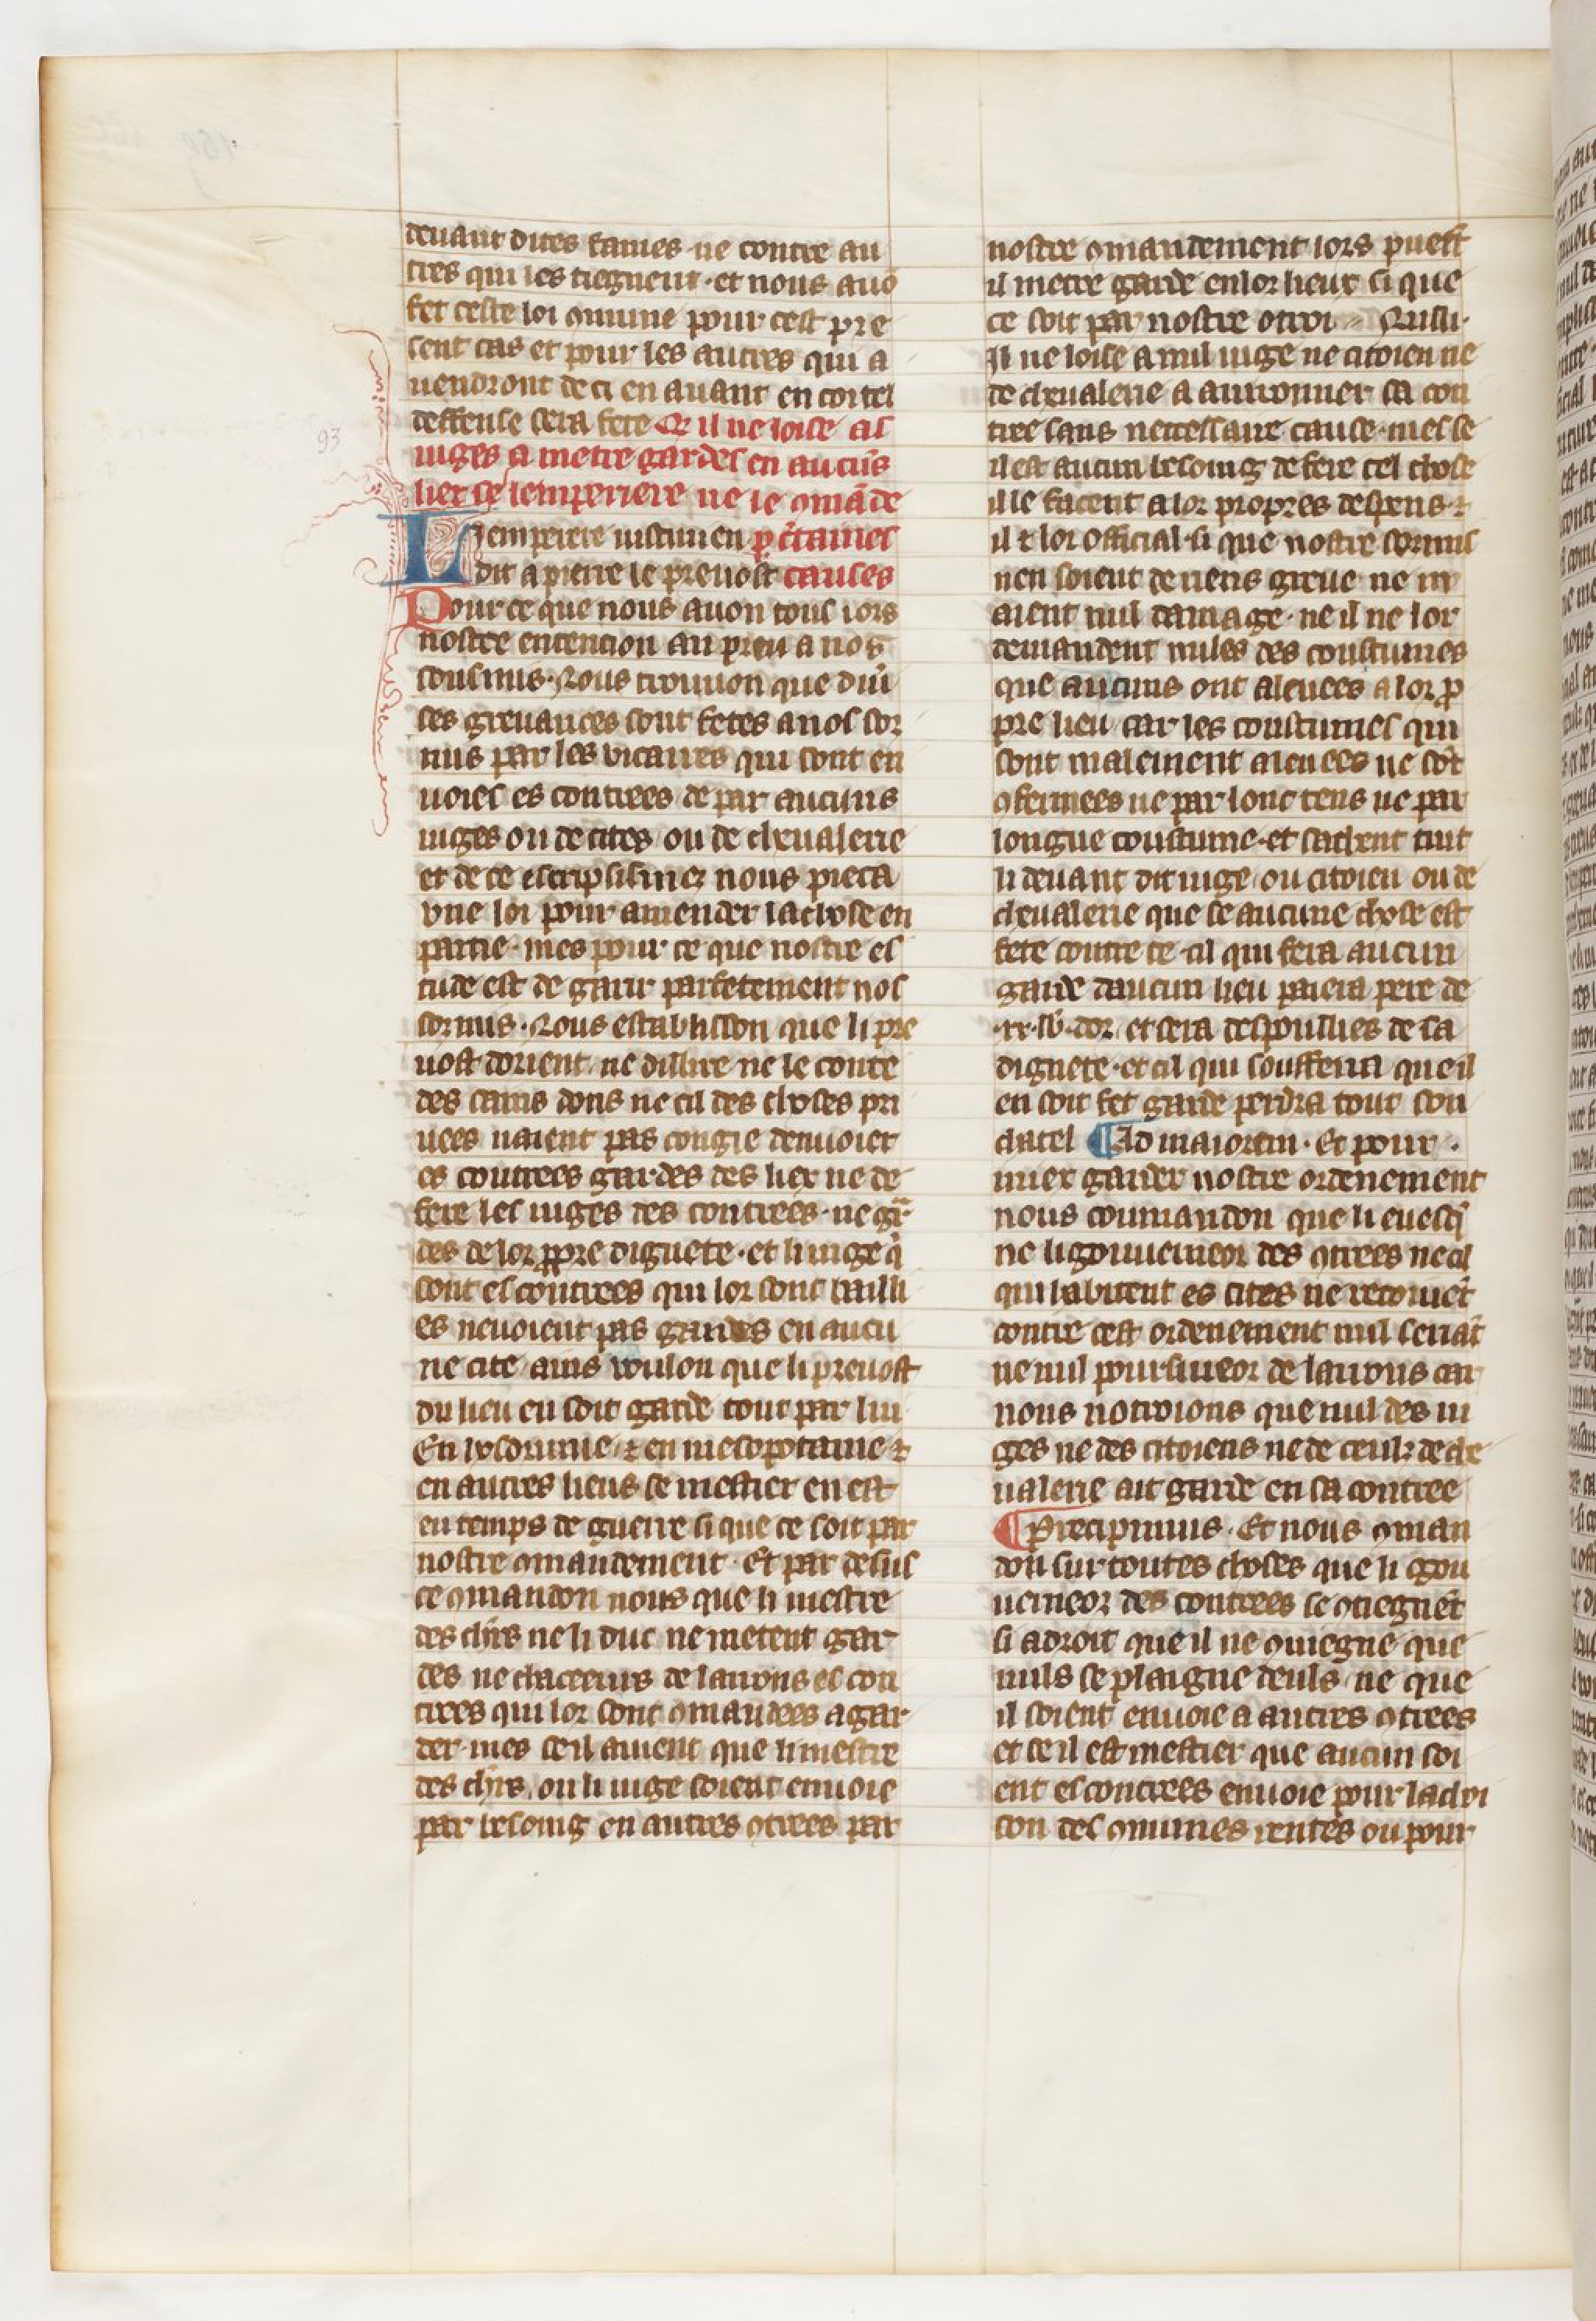 deuant dites fames ne contre au
tres qui les tiegnent · et nous auō
fet ceste loi ꝯmune pour cest pre
sent cas et pour les autres qui a
uendront de ci en auant en cor tel
deffense sera fete Q̄ il ne loise as
iuges a metre gardes en aucūs
liex se lemperiere ne le ꝯmāde
Lemperere iustinien p c̄taines
dit a pierre le preuost causes
Pour ce que nous auon tous iors
nostre entencion au preu a nos
sousmis · Nous trouuon que diūs
ses greuances sont fetes a nos sor
mis par les vicaires qui sont en
uoies es contrees de par aucuns
iuges ou de cites ou de cheualerie
et de ce escripsismez nous pieca
vne loi pour amender la chose en
partie · mes pour ce que nostre es
tude est de garir parfetement nos
sormis · Nous establisson que li pre
uost dorient ne dillire ne le conte
des sains dons ne cil des choses pri
uees naient pas congie denuoier
es contrees gardes des liex ne de
fere les iuges des contrees · ne gar
des de lor ꝓpre dignete · et li iuge q̄
sont es contrees qui lor sont bailli
es nenuoient pas gardes en aucu
ne cite ains voulon que li preuost
du lieu en soit garde tout par lui
En ysdoruine ⁊ en mesopotame ⁊
en autres lieus se mestier en est
en temps de guerre si que ce soit par
nostre ꝯmandement · Et par desus
ce ꝯmandon nous que li mestre
des chrs ne li duc ne metent gar
des ne chaceeurs de larrons es con
trees qui lor sont ꝯmandees a gar
der · mes se il auient que li mestre
des chrs ou li iuge soient enuoie
par besoing en autres ꝯtrees par
nostre ꝯmandement lors puest
il metre garde en lor lieux si que
ce soit par nostre otroi Nulli ·
Il ne loise a nul iuge ne citoien ne
de cheualerie a auironner sa con
tree sans neccessaire cause · mes se
il est aucun besoing de fere tel chose
il le facent a lor propres despens ⁊
il ⁊ lor official si que nostre sormis
nen soient de riens greue ne ni
aient nul damage · ne il ne lor
demandent nules des coustumes
que aucuns ont aleuees a lor ꝓ
pre lieu car les coustumes qui
sont malement aleuees ne sōt
ꝯfermees ne par lonc tens ne par
longue coustume · et sachent tuit
li deuant dit iuge ou citoien ou de
cheualerie que se aucune chose est
fete contre ce · cil qui fera aucun
garde daucun lieu paiera pere de
· xx · lb · dor et sera despoullies de sa
dignete · et cil qui souffera que il
en soit fet garde perdra tout son
chatel ¶ Ad maiorem · Et pour ·
miex garder nostre ordenement
nous coumandon que li euesq̄
ne li gouuerneor des ꝯtrees ne cil
qui habitent es cites ne recoiuēt
contre cest ordenement nul seriāt
ne nul poursiueor de larrons car
nous notroions que nul des iu
ges ne des citoiens ne de ceulz de che
ualerie ait garde en sa contree
¶ Precipimus · Et nous ꝯman
don sur toutes choses que li gou
uerneor des contrees se ꝯtiegnēt
si adroit que il ne ꝯuiegne que
nuls se plaigne deuls ne que
il soient enuoie a autres ꝯtrees
et se il est mestier que aucun soi
ent es contrees enuoie pour lachoi
son des ꝯmunes rentes ou pour